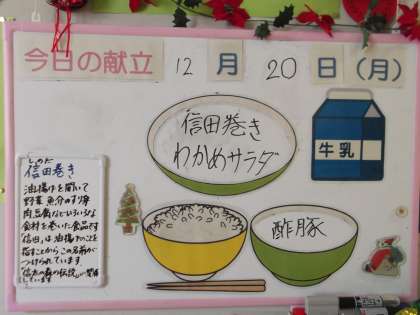 今日の献立 12月20日(月)
信田巻き
わかめサラダ
牛乳
酢豚
しのだ
信田巻き
油揚げを開いて
野菜、魚介のすり身
肉、豆腐などいろいろな
食材を巻いた食品です
「信田」は、油揚げのことを
指すことからこの名前が
つけられています
「信太の森の伝説」に関係
しています